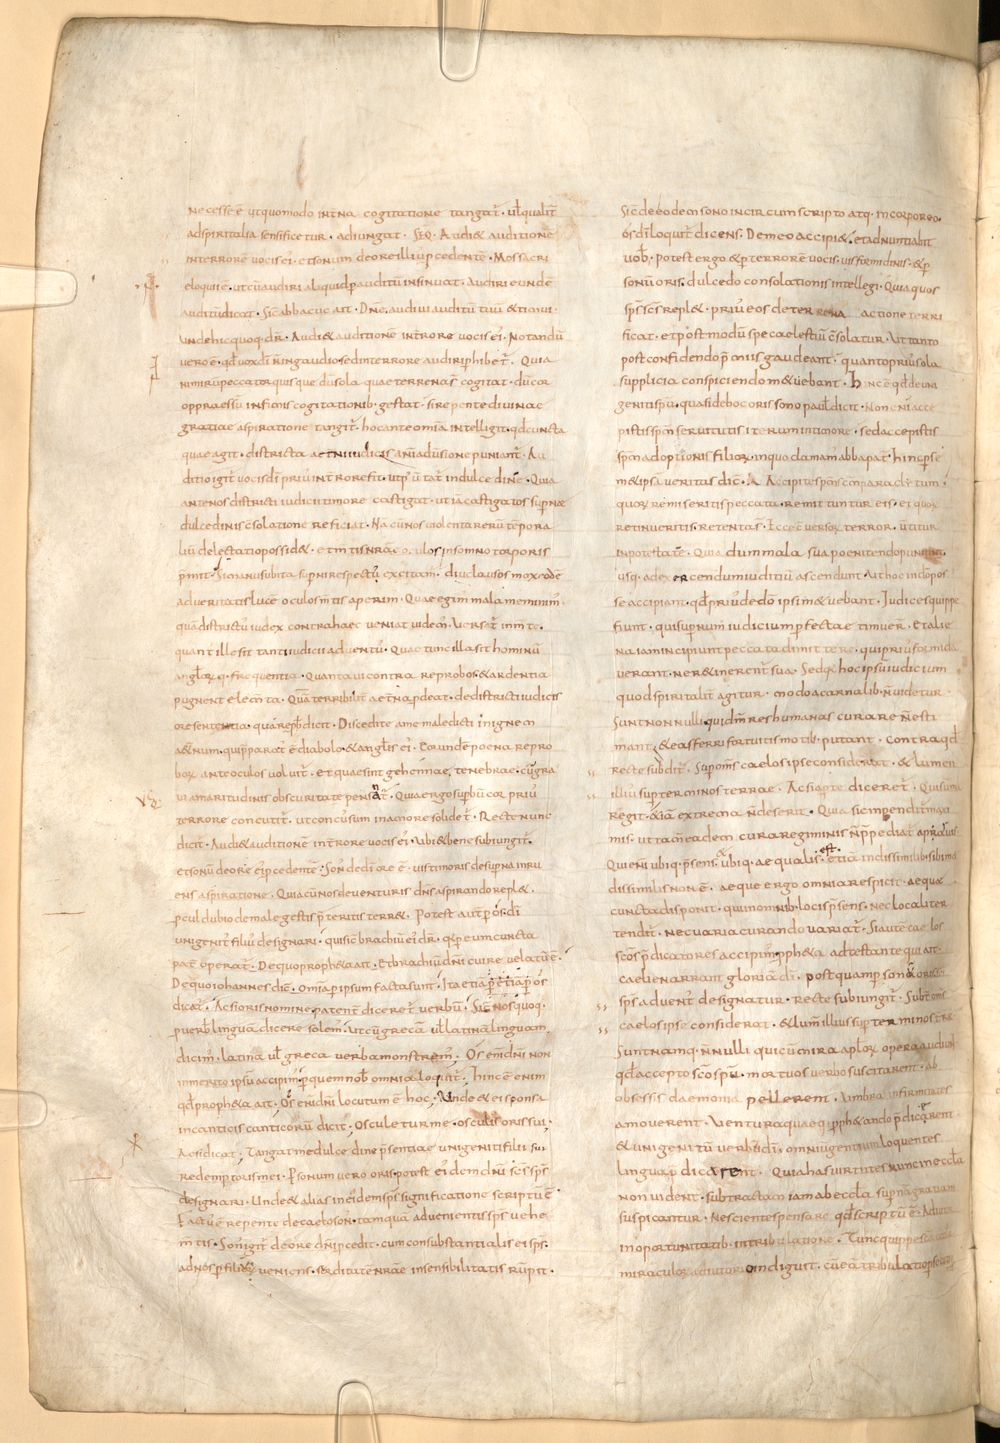 necesse ē ut quomodo int̄na cogitatione tangat̄· ul̄ qualit̄
ad spiritalia sensificetur· adiungat· Seq̄· Audi& auditionē
in terrore uocis ei᾿· et sonum de ore illi᾿ p̄cedentē· Mos sacri
eloquii ē· ut cū audiri aliquid p̱ auditū insinuat· Audiri eundē
auditū dicat· Sic abbacuc ait· Dnē· audiui auditū tuū & timui·
Unde hic quoq· dr̄· Audi& auditionē in t̄rore uocis ei᾿· Notandū
uero ē· qd̄ uox dī n̄ in gaudio· sed in terrore audiri phibet̄· Quia
nimirū peccator quisque dū sola quae terrena s̄ cogitat· dū cor
oppraessū infimis cogitationib· gestat· si repente diuinae
gratiae aspiratione tangit̄· hoc ante omīa intelligit· qd̄ cuncta
quae agit· districta aet̄ni iudicis animaduersione puniant̄· Au
ditio igit̄ uocis dī prius in t̄rore fit· ut p᾿ ūtat̄ in dulcedine· Quia
ante nos districti iudicii timore castigat· ut iā castigatos supnae
dulcedinis c̄solatione reficiat· Nā cū nos uiolenta rerū tēpora
liū delectatio possid&· et m̄tis n̄rae oculos in somno torporis
p̄mit· Si manu subita sup̄ni respect᾿ excitam᾿· diu clausos mox eodē
ad ueritatis lucē oculos m̄tis aperim᾿· Quae egim᾿ mala meminim᾿·
quā district᾿ iudex contra haec ueniat uidem᾿· Uersat̄ in m̄te·
quant᾿ ille sit tanti iudicii aduent᾿· Quae tunc illa sit hominū
angl̄orūq· frequentia· Quanta ui contra reprobos & ardentia
pugnent elem̄ta· Quā terribilit̄ aet̄na p̱deat· de districti iudicis
ore sententia· qua rep̱bis dicit· Discedite a me maledicti in ignem
aet̄num· qui p̱parat᾿ ē diabolo· & angl̄is ei᾿· Eorundē poena repro
borū ante oculos uoluit̄· et quae sint gehennae, tenebrae· cū gra
ui amaritudinis obscuritate pensat̄· Quia ergo sup̱bū cor prius
terrore concutit̄· ut concussum in amore solidet̄· Recte nunc
dicit̄· Audi& auditionē in t̄rore uocis ei᾿· Ubi & bene subiungit̄·
Et sonū de ore ei᾿ p̄cedentē· Son᾿ de dī ore ē· uis timoris desup̱na in ru
ens aspiratione· Quia cū nos de uenturis dn̄s aspirando repl&·
p̱cul dubio de male gestis p̄teritis terr&· Potest aut̄ p̱ os dī
unigenit᾿ filius designari· qui sic brachiū ei᾿ dr̄· q̄a p̱ eum cuncta
pat̄ operat̄· De quo proph&a ait· Et brachiū dn̄i cui reuelatū ē·
De quo iohannes dicit· Omīa p̱ ipsum facta sunt· Ita etiā p̱ os
dicat᾿· Ac si oris nomine patent̄ diceret̄ uerbū· Sic & nos quoq·
p̱ uerbis linguā dicere solem᾿· ut cū grecā ul̄ latinā linguam
dicim᾿· latina ul̄ greca uerba monstrem᾿· Os ē nī dn̄i non
inmerito ipsū accipim᾿· p̱ quem nob omnia loquit̄· Hinc ē enim
qd̄ proph&a ait· Os enī dn̄i locutum ē hoc· Unde & ei sponsa
in canticis canticorū dicit· Oscul&ur me osculis oris sui·
Ac si dicat· Tangat me dulcedine p̱sentiae unigeniti filii sui
redemptoris mei· P̱ sonum uero oris· potest eidem dn̄i sc̄s sp̄s
designari· Unde & alias in eidem sp̄s significatione scriptū ē·
Fact᾿ ē repente de caelo son᾿· tamquā aduenientis sp̄s uehe
m̄tis· Son᾿ igit̄ de ore dn̄i p̄cedit· cum consubstantialis ei sp̄s·
ad nos p̱ filiū ueniens· surditatē n̄rae insensibilitatis rūpit·
Sic de eodem sono incircumscripto atq· incorporeo·
os dī loquit̄ dicens· De meo accipi&· et adnuntiabit
uob· Potest ergo & p̱ terrorē uocis· uis formidinis· & p̱
sonū oris· dulcedo consolationis intellegi· Quia quos
sp̄s sc̄s repl&· prius eos de terrena actione terri
ficat· et postmodū spe caelestiū c̄solatur· Ut tanto
post confidendo p̱ mīis gaudeant· quanto prius sola
supplicia conspiciendo m&uebant· Hinc ē qd̄ de uni
geniti sp̄u· quasi de hoc oris sono paul᾿ dicit· Non enī acce
pistis sp̄m seruitutis iterum in timore· sed accepistis
sp̄m adoptionis filiorū· in quo clamam᾿ abba pat̄· Hinc p̱ se
m&ipsā ueritas dic̄· Accipite sp̄m sc̄m paraclytum·
quorū remiseritis peccata· remittuntur eis· et quorū
retinueritis· retenta s̄· Ecce c̄uersorū terror· ūtitur
in potestatē· Quia dum mala sua poenitendo puniunt·
usq· ad exercendum iudiciū ascendunt· Ut hoc in dō pos
se accipiant· qd̄ prius de dō ipsi m&uebant· Iudices quippe
fiunt· qui supernum iudicium p̱fectae timuer̄· Et alie
na iam incipiunt peccata dimittere· qui prius formida
uerant· ne r&inerent̄ sua· Sed q̄a hoc ipsū iudicium
quod spiritalit̄ agitur· modo a carnalib· n̄ uidetur·
Sunt nonnulli· qui dn̄m res humanas curare n̄ esti
mant· & eas ferri fortuitis motib· putant· Contra qd̄
recte subdit̄· Sup̱ om̄s caelos ipse considerat· & lumen
illi᾿ sup̱ terminos terrae· Ac si apte diceret̄· Qui summa
regit· &iā extrema n̄ deserit· Quia sic inpendit̄ maxi
mis· ut tam̄ eadem cura regiminis n̄ p̱pediat̄ a paruis·
Qui enī ubiq· p̱sens & ubiq· aequalis est· etiā in dissimilib· sibimet
dissimilis non ē· Aeque ergo omnia respicit· aequae
cuncta disponit· qui in omnib· locis p̱sens· nec localiter
tendit̄· nec uaria curando uariat̄· Si autē caelos
sc̄os p̱dicatores accipim᾿· proph&a adtestante qui ait·
Caeli enarrant gloriā dī· postquam p̱ sonū oris sui
sp̄s aduent᾿ designatur· recte subiungit̄· Subt̄ om̄s
caelos ipse considerat· & lum̄ illius sup̱ terminos terrae
Sunt namq· n̄nulli qui cū mira apl̄orū opera audiunt
qd̄ accepto sc̄o sp̄u· mortuos uerbo suscitarent· ab
obsessis daemonia pellerent· Umbra infirmitates
amouerent· Uentura quaeq· proph&ando p̱dicarent
& unigenitū uerbū dī· omniū gentium loquentes
lingua p̱dicarent· Quia has uirtutes nunc in eccl̄a
non uident· subtractam iam ab eccl̄a sup̱nā gratiam
suspicantur· Nescientes pensare qd̄ scriptū ē· Adiutor
in oportunitatib· in tribulatione· Tunc quippe sc̄a eccl̄a
miraculorū adiutorio indiguit· cū eā tribulatio p̱secut